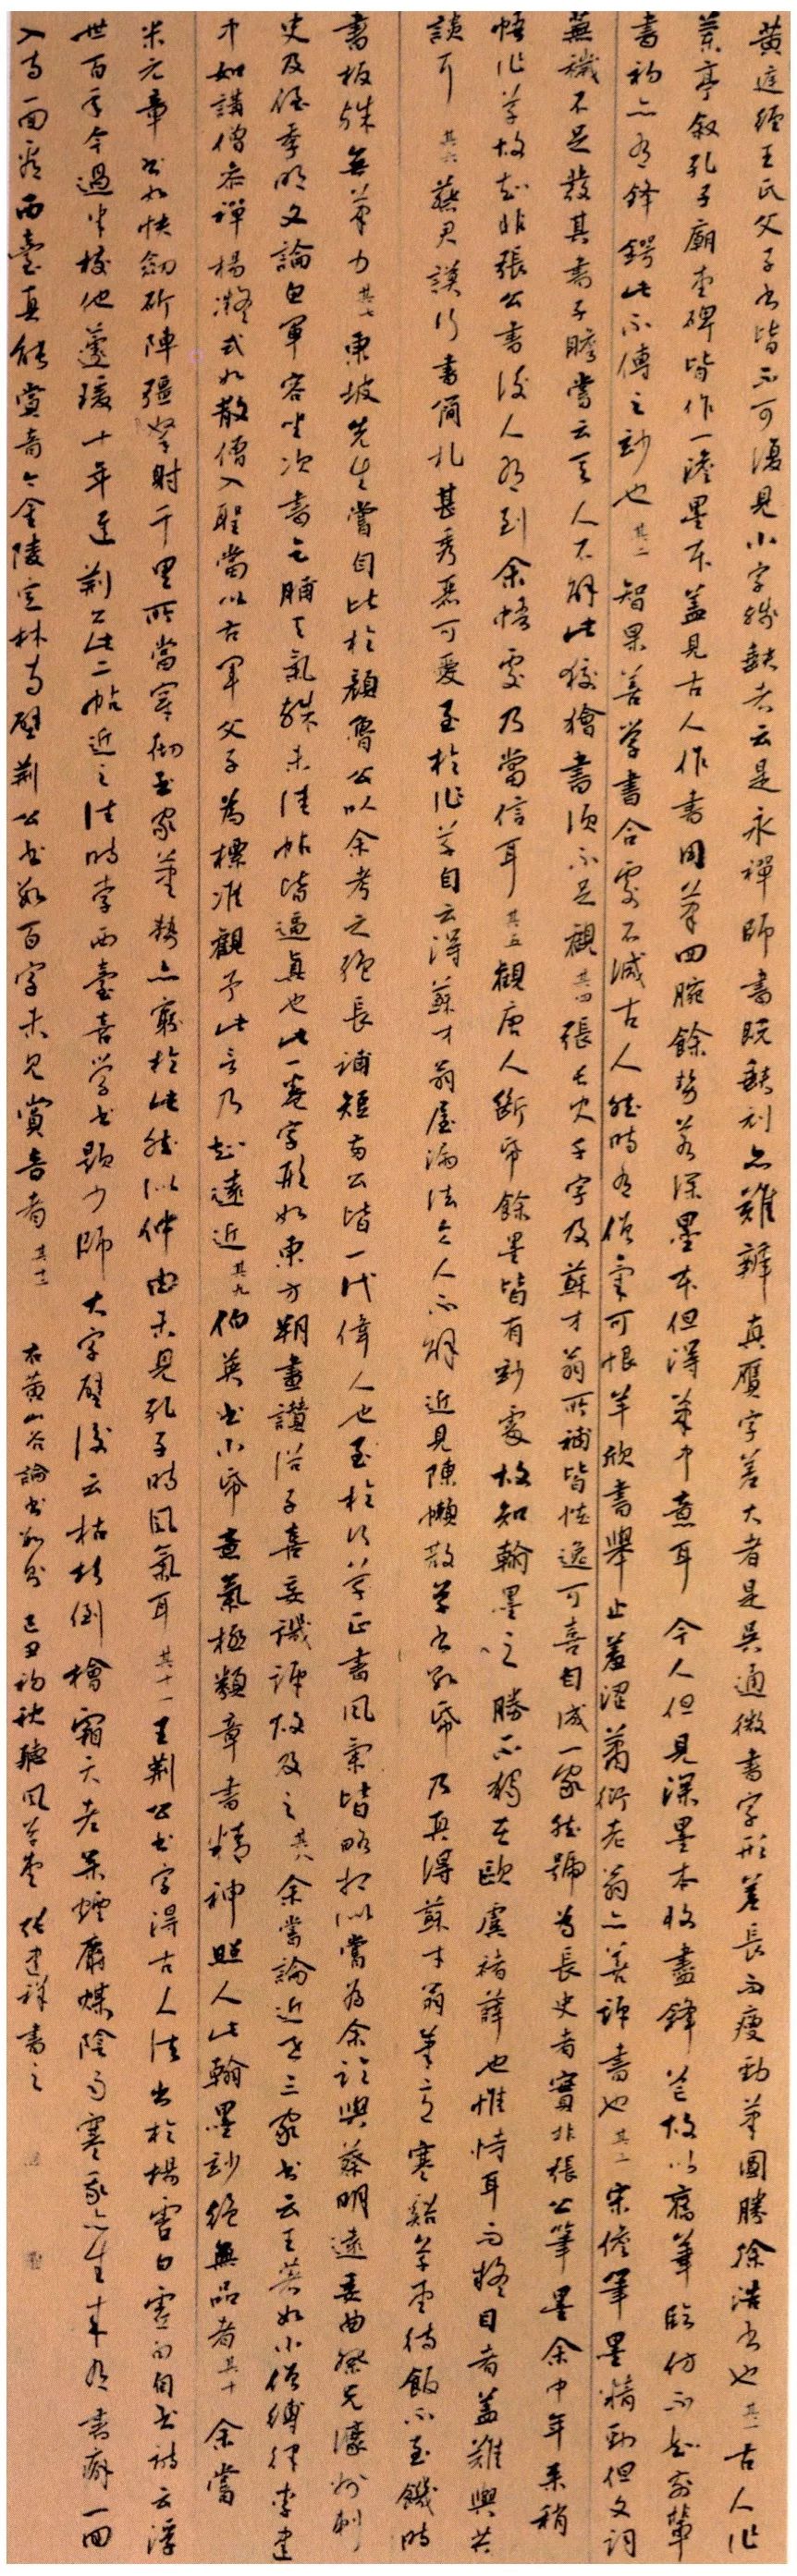 黃庭經王氏父子書皆不可復見小字殘缺者云是永禪師書既缺剝亦難辨真贋字差大者是吳通微書字形差長而瘦勁筆圓勝徐浩書也其一古人作
蘭亭叙孔子廟堂碑皆作一淡墨本蓋見古人作書用筆回腕餘勢若深墨本但得筆中意耳今人但見深墨本收盡鋒芒故以舊筆臨仿不知前輩
書初亦有鋒鍔此不傳之妙也其二智果善學書合處不減古人然時有僧氣可恨羊欣書舉止羞澀蕭衍老翁亦善評書也其三宋儋筆墨精勁但文詞
蕪穢不足發其書子瞻嘗云其人不解此狡獪書便不足觀其四張長史千字及蘇才翁所補皆怪逸可喜自成一家然號為長史者實非張公筆墨余中年來稍
悟作草故知非張公書後人有到余悟處乃當信耳其五觀唐人斷帋餘墨皆有妙處故知翰墨之勝不獨在歐虞褚薛也惟恃耳而疑目者蓋難與共
談耳其六蔡君謨行書簡札甚秀麗可愛至於作草自云得蘇才翁屋漏法令人不解近見陳懶散草書數帋乃真得蘇才翁筆意寒谿草堂待飯不至饑時
書板殊無筆力其七東坡先生嘗自比於顏魯公以余考之絕長補短兩公皆一代偉人也至於行草正書風氣皆略相似嘗為余臨與蔡明遠委曲祭兄濠州刺
史及侄季明文論魚軍容坐次書乞脯天氣殊未佳帖皆逼真也此一卷字形如東方朔畫讚俗子喜妄譏評故及之其八余嘗論近世三家書云王著如小僧縛律李建
中如講僧參禪楊凝式如散僧入聖當以右軍父子為標准觀予此言乃知遠近其九伯英書小帋意氣極類章書精神照人此翰墨妙絕無品者其十余嘗
米元章書如快劍斫陣強弩射千里所當穿徹書家筆勢亦窮於此然似仲由未見孔子時風氣耳其十一王荊公書字得古人法出於楊虛白虛白自書詩云浮
世百年今過半校他蘧瑗十年遲荊公此二帖近之往時李西臺喜學書題少師大字壁後云枯杉倒檜霜天老松煙麝煤陰雨寒我亦生來有書癖一回
入寺一回看西臺真能賞音今金陵定林寺壁荊公書數百字未見賞音者其十二右黃山谷論書數則己丑初秋聽風草堂張建祥書之